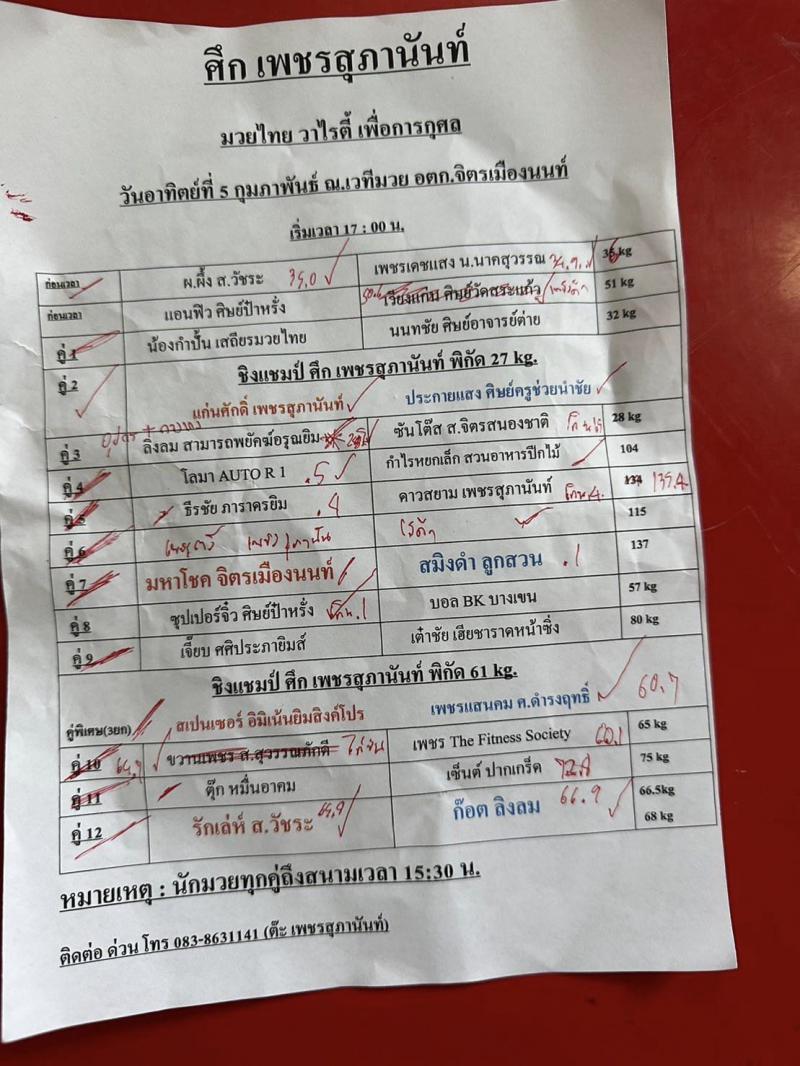 ศึก เพชรสุภานันท์
มวยไทย วาไรตี้ เพื่อการกุศล
วันอาทิตย์ที่ 5 กุมภาพันธ์ ณ.เวทีมวย อตก.จิตรเมืองนนท์
เริ่มเวลา 17 : 00 น.
ก่อนเวลา ผ.ผึ้ง ส.วัชระ 35.0 เพชรเดชแสง น.นาคสุวรรณ kg
ก่อนเวลา แอนฟิว ศิษย์ป๋าหรั่ง เรียงแก่น ศิษย์วัดสระแก้ว 51 kg
คู่ 1 น้องกำปั้น เสถียรมวยไทย นนทชัย ศิษย์อาจารย์ต่าย 32 kg
คู่ 2 ชิงแชมป์ ศึก เพชรสุภานันท์ พิกัด 27 kg.
แก่นศักดิ์ เพชรสุภานันท์ ประกายแสง ศิษย์ครูช่วยนำชัย
คู่ 3 ลิงลม สามารถพยัคฆ์อรุณยิม ซันโต๊ส ส.จิตรสนองชาติ 28 kg
คู่ 4 โลมา AUTO R 1 .5 กำไรหยกเล็ก สวนอาหารปีกไม้ 104
คู่ 5 ธีรชัย ภาราดรยิม .4 ดาวสยาม เพชรสุภานันท์ 134 135.4
คู่ 6 115
คู่ 7 มหาโชค จิตรเมืองนนท์ สมิงดำ ลูกสวน .1 137
คู่ 8 ซุปเปอร์จิ๋ว ศิษย์ป๋าหรั่ง บอล BK บางเขน 57 kg
คู่ 9 เจี๊ยบ ศศิประภายิมส์ เต๋าชัย เฮียชาราดหน้าซิ่ง 80 kg
ชิงแชมป์ ศึก เพชรสุภานันท์ พิกัด 61 kg.
คู่พิเศษ(3ยก) สเปนเซอร์ อิมิเน้นยิมสิงค์โปร เพชรแสนคม ศ.ดำรงฤทธิ์ 60.7
คู่ 10 ขวานเพชร ส.สุวรรณภักดี เพชร The Fitness Society 65 kg
คู่ 11 ตุ๊ก หมื่นอาคม เซ็นต์ ปากเกร็ด 75 kg
คู่ 12 รักเล่ห์ ส.วัชระ ก๊อต ลิงลม 66.9 66.5kg
68 kg
หมายเหตุ : นักมวยทุกคู่ถึงสนามเวลา 15:30 น.
ติดต่อ ด่วน โทร 083-8631141 (ต๊ะ เพชรสุภานันท์)